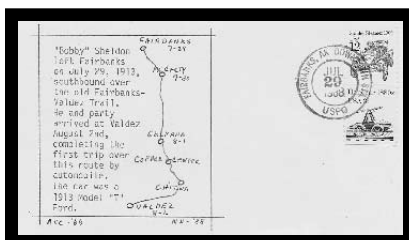 "Bobby" Sheldon
left Fairbanks
on July 29, 1913,
southbound over
the old Fairbanks-
Valdez Trail.
He and party
arrived at Valdez
August 2nd,
completing the
first trip over
this route by
automobile.
The car was a
1913 Model "T"
Ford.
FAIRBANKS
7-29
McCARTY
7-30
GULKANA
8-1
COPPER CENTER
CHITINA
VALDEZ
8-2
FAIRBANKS, AK
JUL
29
1988
USPO